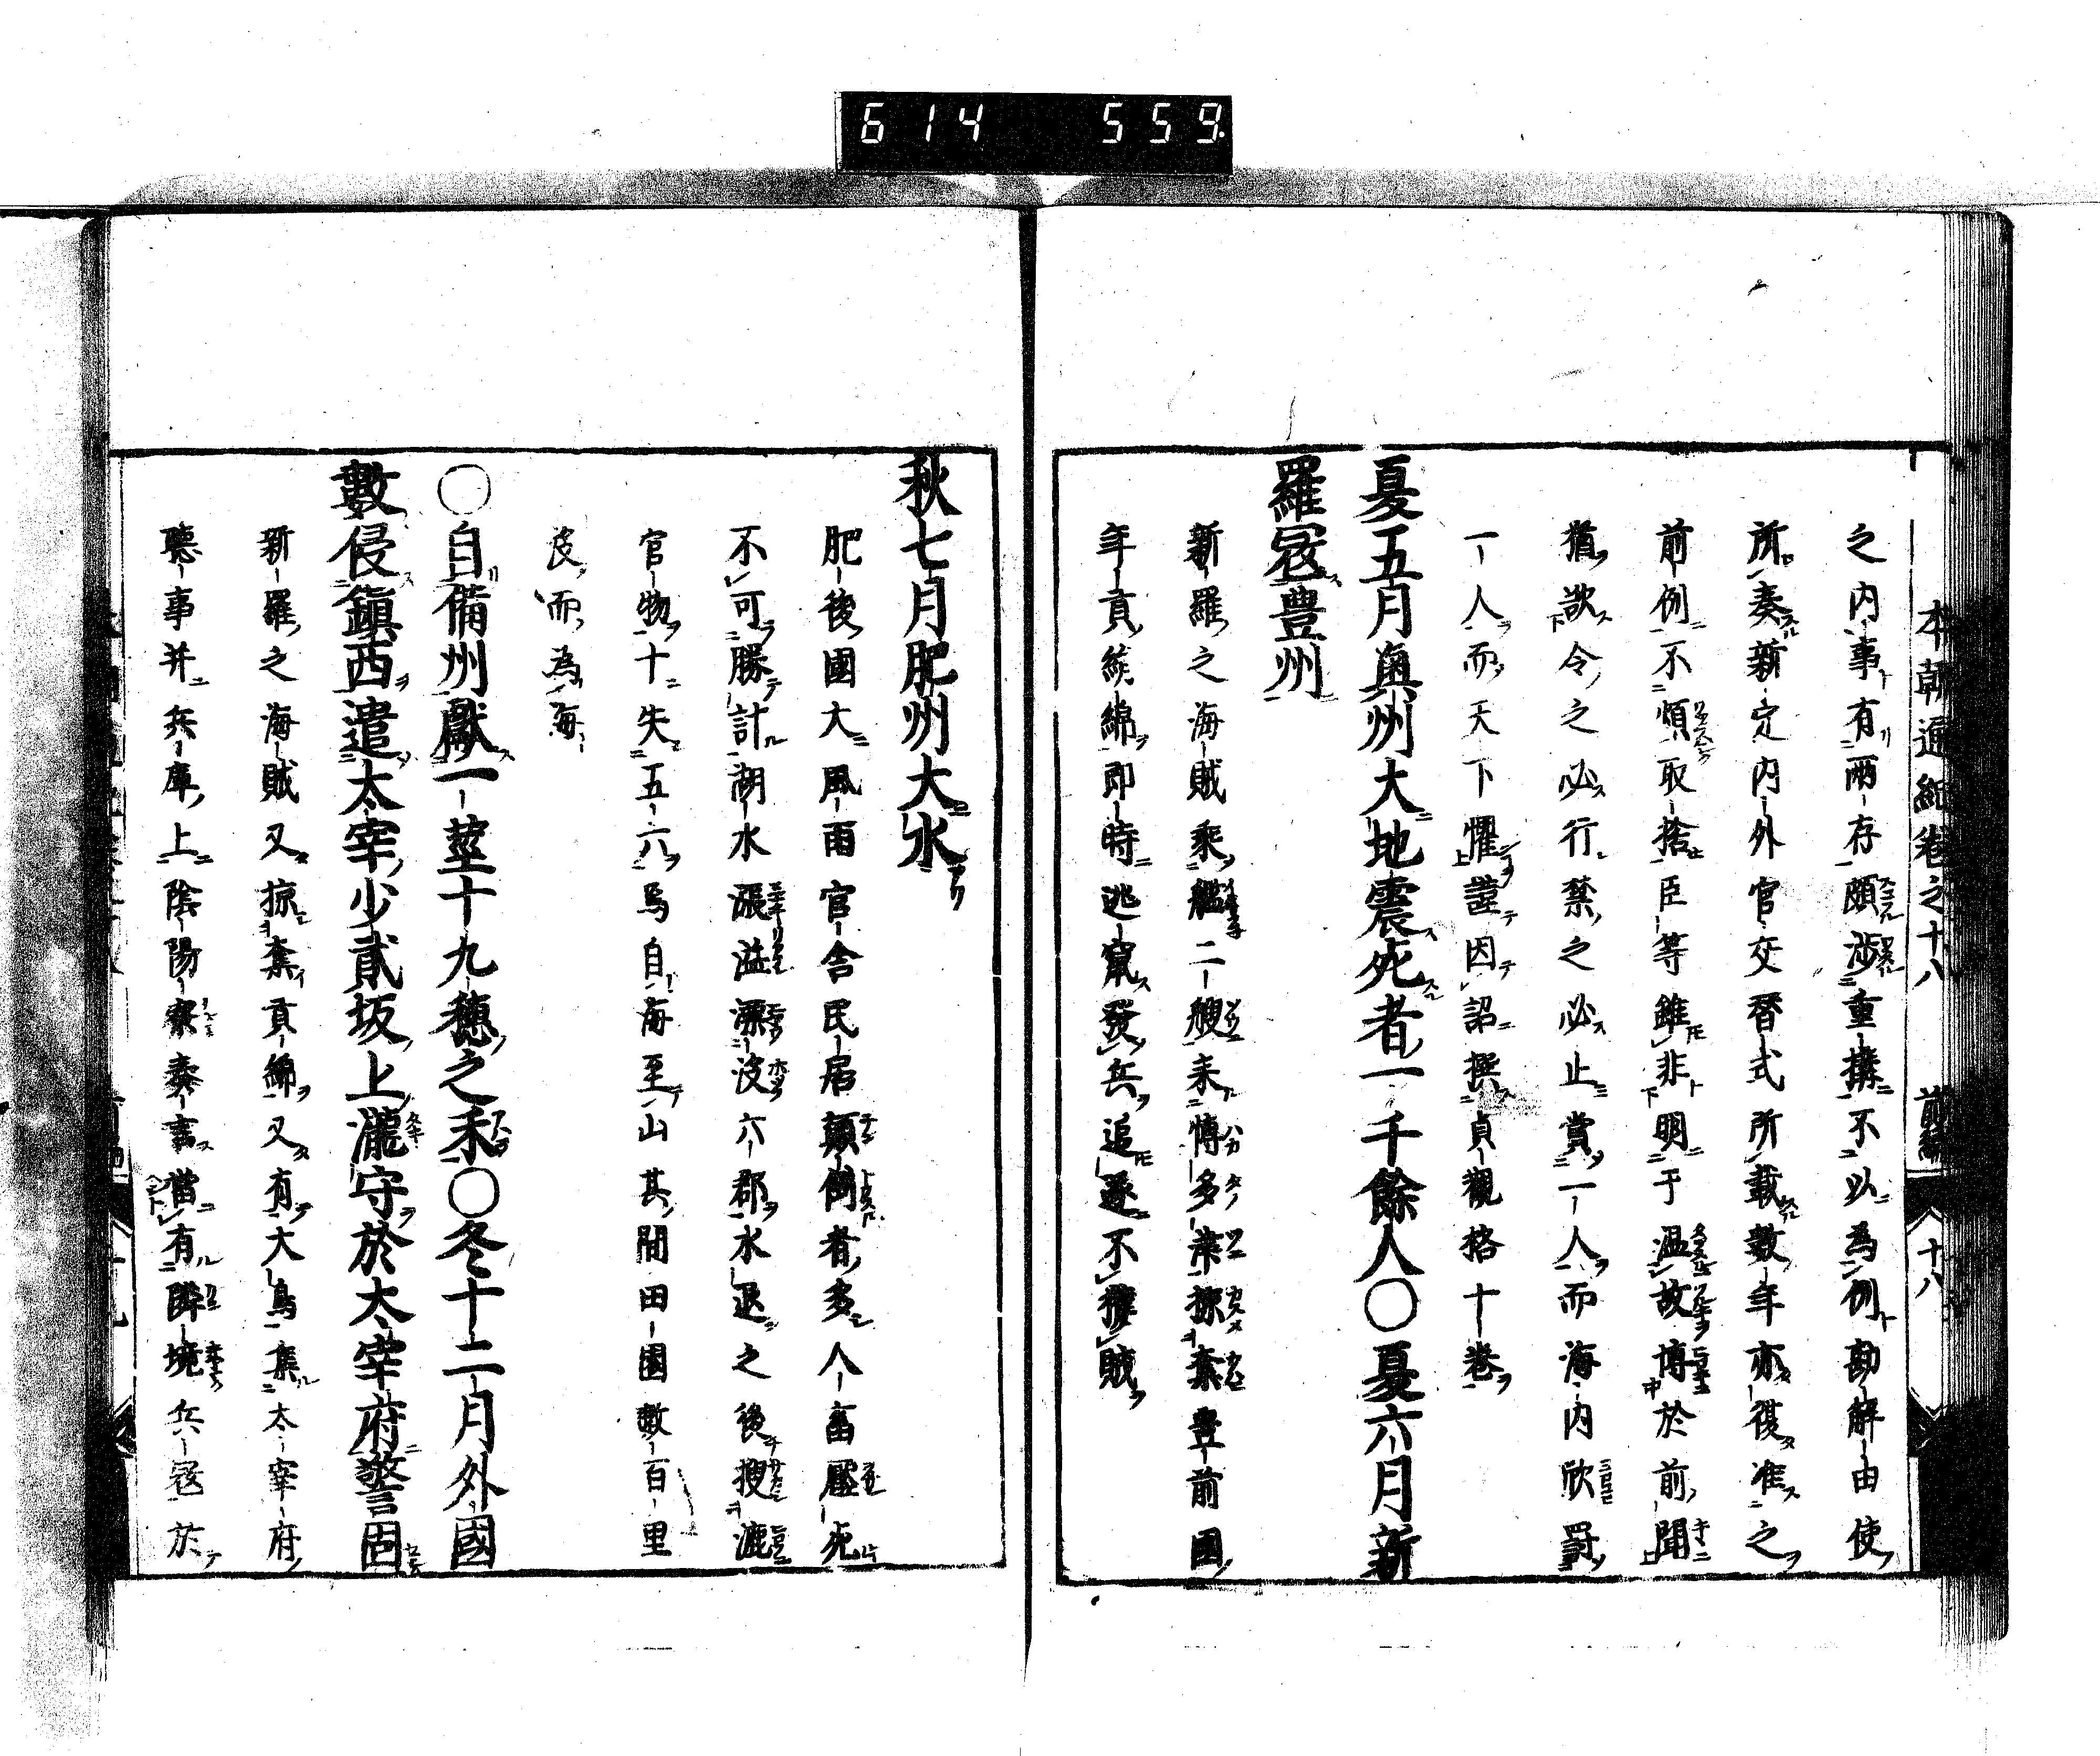 614 559
本朝通紀卷之十八 前編 十八
之內事有兩存頗涉重搆不以為例勘解由使
所奏新定內外官交替式所載數年亦復准之
前例不煩取捨臣等雖非明于溫故博於前聞
猶欲令之必行禁之必止賞一人而海內欣罰
一人而天下懼謹因詔撰貞觀格十卷
夏五月奧州大地震死者一千餘人〇夏六月新
羅寇豊州
新羅之海賊乘艦二艘来博多津掠奪豊前國
年貢絹綿即時逃竄發兵追逐不獲賊
秋七月肥州大水
肥後國大風雨官舍民居顛倒者多人畜壓死
不可勝計潮水漲溢漂沒六郡水退之後搜漉
官物十失五六焉自海至山其間田園數百里
沒而為海
〇自備州獻一莖十九穗之禾〇冬十二月外國
數侵鎭西遣太宰少貳坂上瀧守於太宰府警固
新羅之海賊又掠奪貢綿又有大鳥集太宰府
聽事并兵庫上陰陽寮奏言當有隣境兵寇於